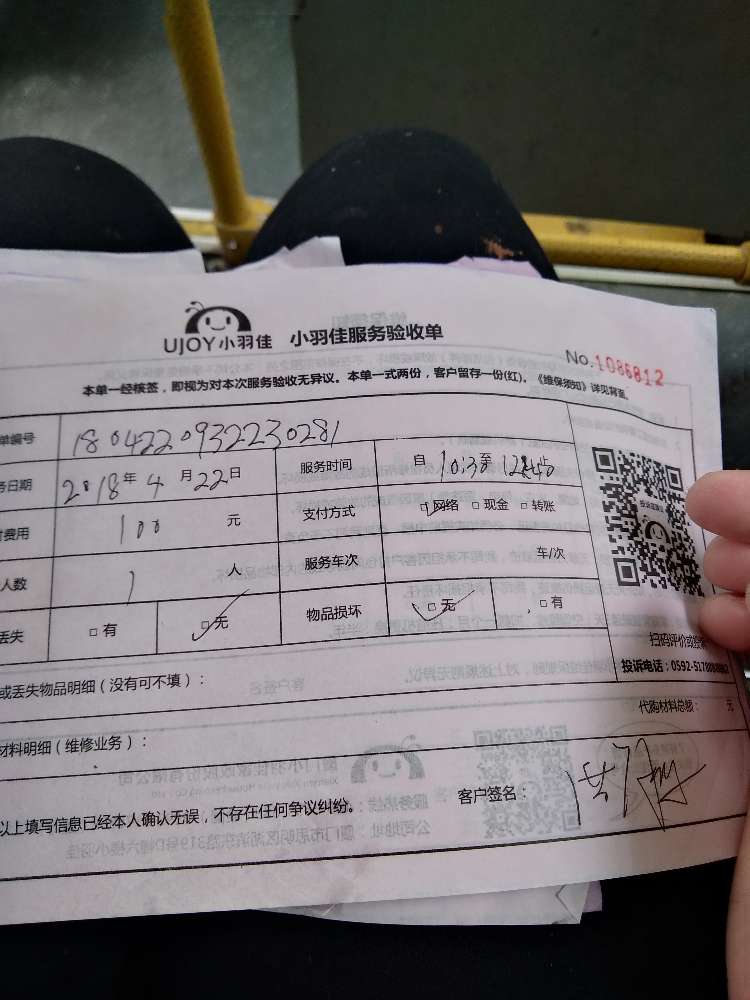 UJOY小羽佳 小羽佳服务验收单
No.1086812
本单一经核签，即视为对本次服务验收无异议。本单一式两份，客户留存一份(红)。《维保须知》详见背面。
单编号 1804220932230281
务日期 2018年4月22日 服务时间 自10:30至
费用 100 元 支付方式 □网络 □现金 □转账
人数 1 人 服务车次 车/次
丢失 □有 □无 物品损坏 □无 □有
扫码评价或投诉
投诉电话：0592-5178
或丢失物品明细（没有可不填）：
代购材料总额： 元
材料明细（维修业务）：
以上填写信息已经本人确认无误，不存在任何争议纠纷。 客户签名：